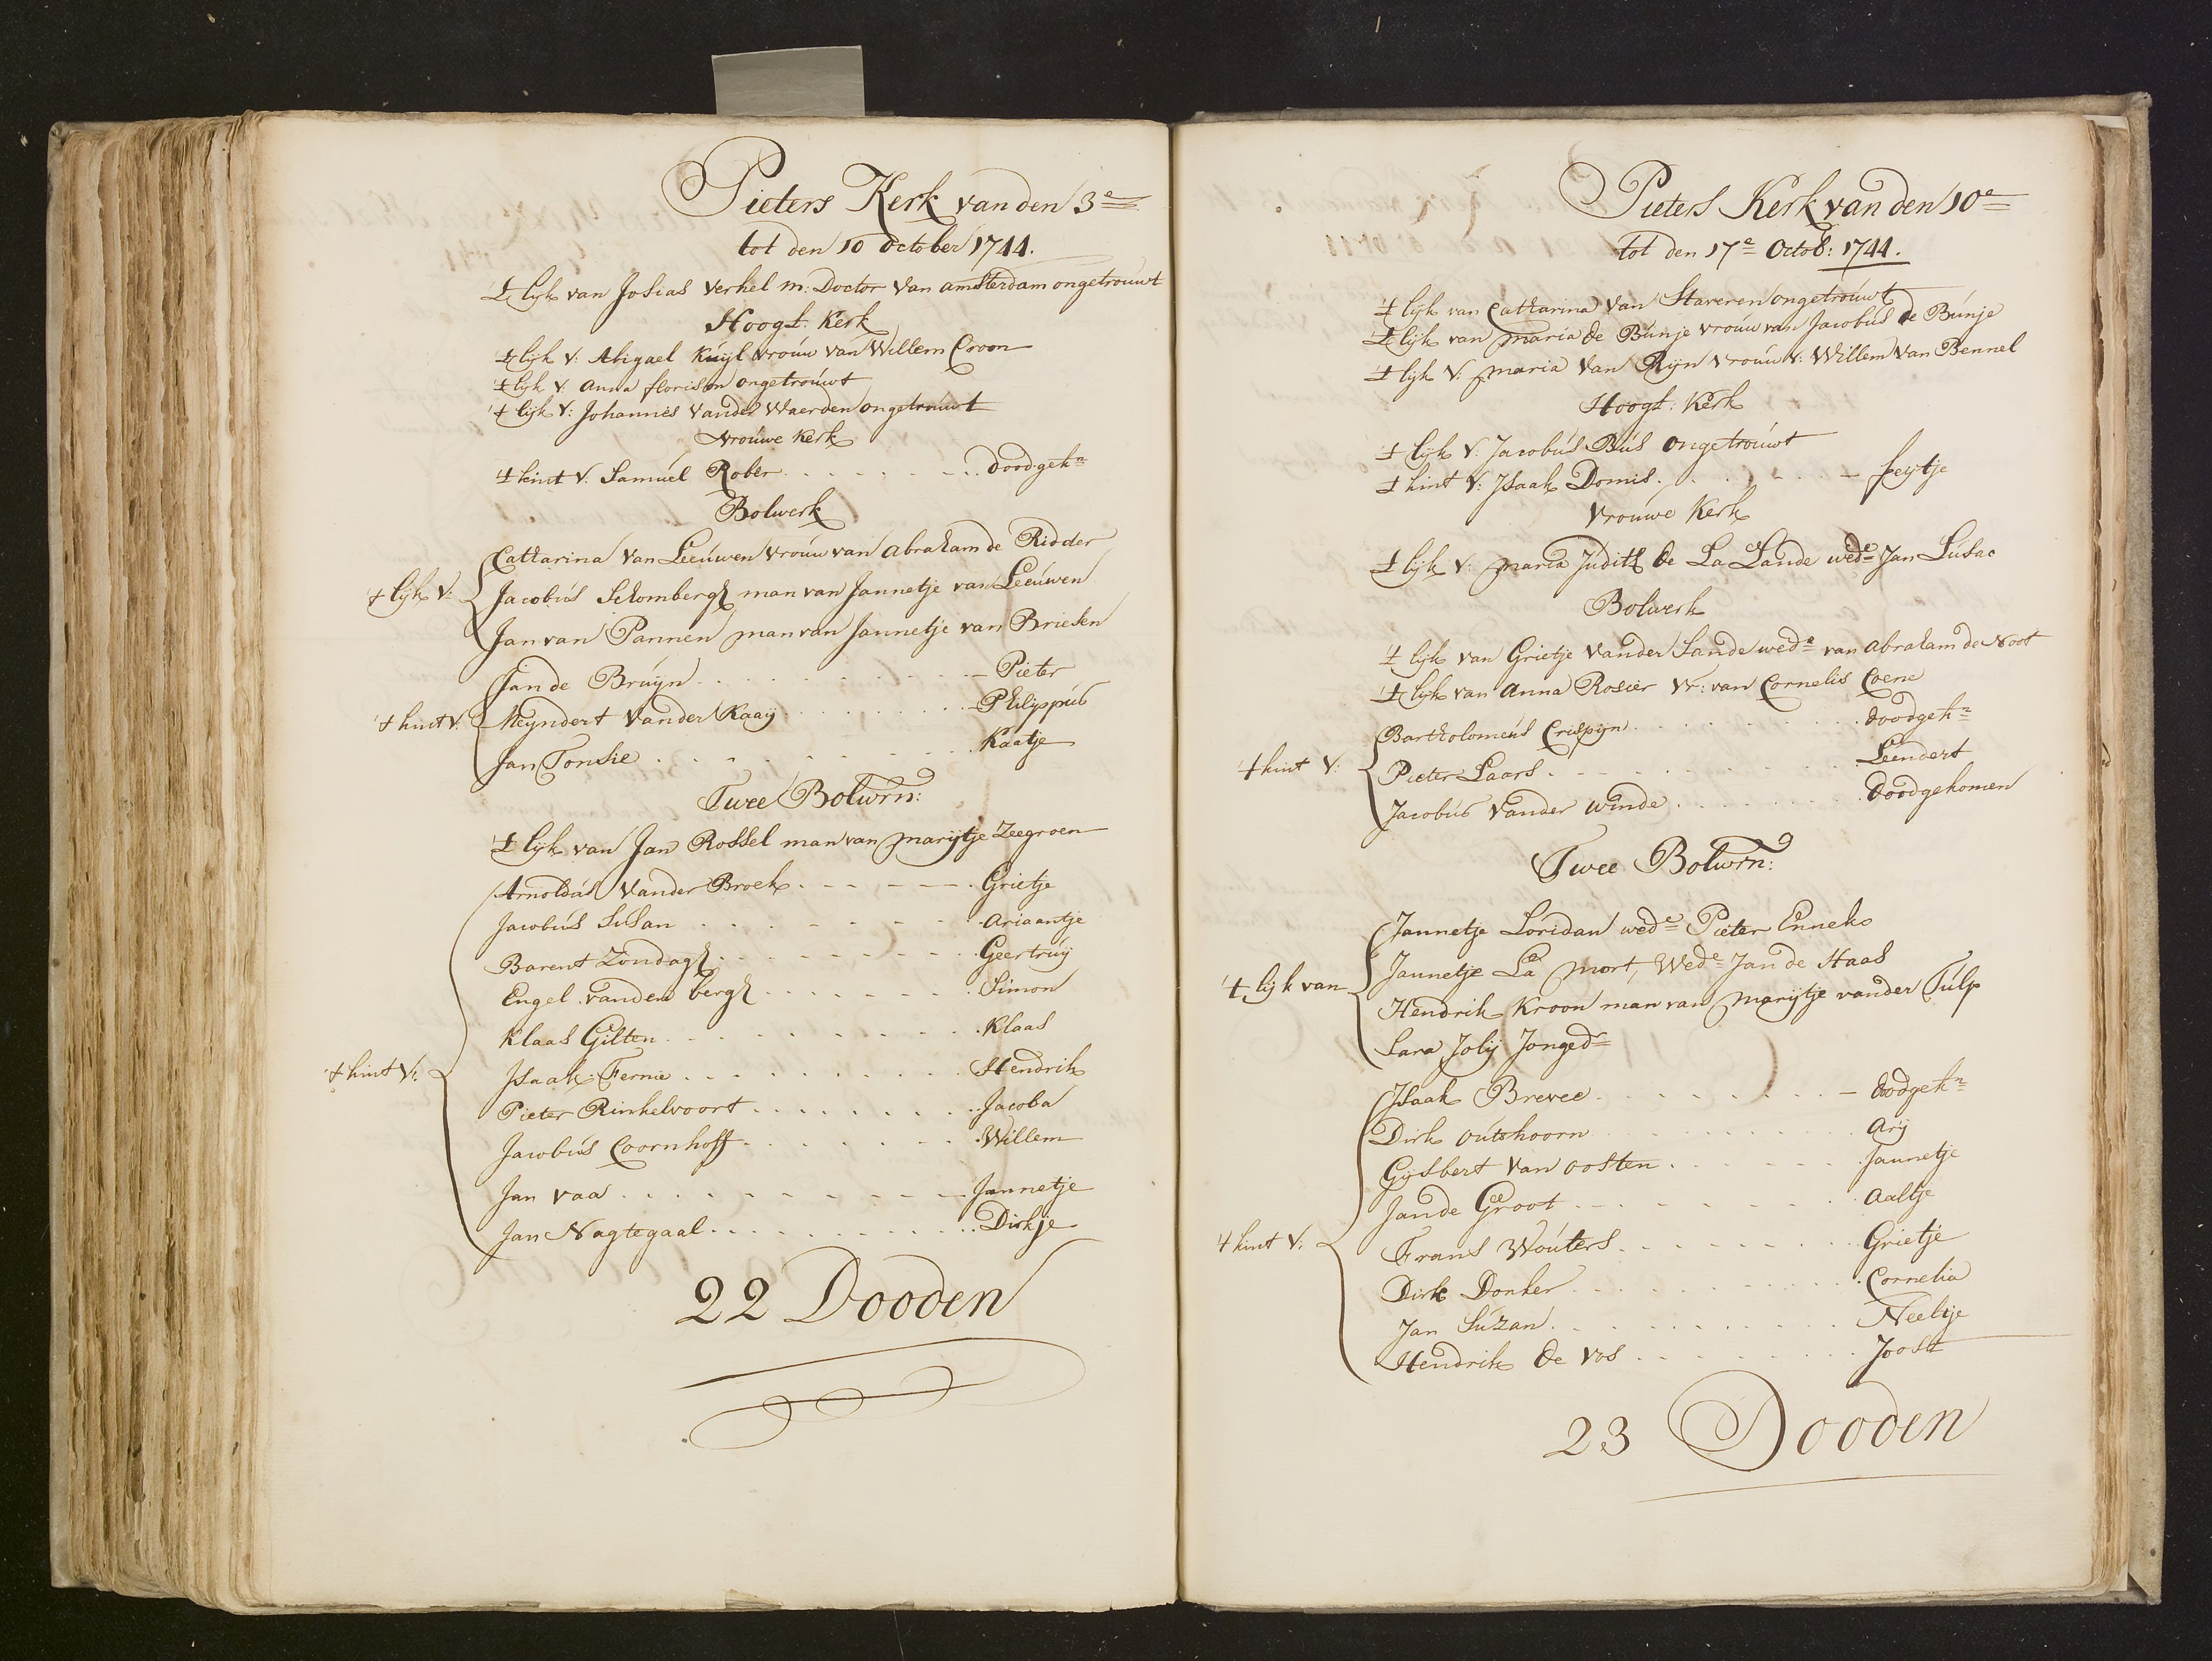 Pieters Kerk van den 3e
tot den 10 October 1744.
't lijk van Josias Verhel m: Doctor van amsterdam ongetrouwt
Hoogl: Kerk
't lijk v: Abigael Kuyl vrouw van Willem Croon
't lijk v: Anna florison ongetrouwt
't lijk v: Johannes vander Waerden ongetrouwt
Vrouwe Kerk
't kint v: Samuel Rober doodgekn
Bolwerk
Cattarina van Leeuwen vrouw van Abraham de Ridder
't lijk v: Jacobus Schombergh man van Jannetje van Leeuwen
Jan van Pannen man van Jannetje van Brieken
Jan de Bruyn Pieter
't kint v: Meyndert vander Kaay Philippus
Jan Tonsie Kaatje
Twee Bolwrn:
't lijk van Jan Rossel man van marijtje Zeegroen
Arnoldus vander Broek Grietje
Jacobus Susan Ariaantje
Barent Zondagh Geertruy
Engel vanden bergh Simon
Klaas Gilten Klaas
't kint v: Isaak Fernie Hendrik
Pieter Rinkelvoort Jacoba
Jacobus Coornhoff Willem
Jan vaa Jannetje
Jan Nagtegaal Dirkje
22 Dooden
Pieters Kerk van den 10e
tot den 17e Octob: 1744.
't lijk van Cattarina van Staveren ongetrouwt
't lijk van maria de Bunje vrouw van Jacobus de Bunje
't lijk v: maria van Rijn vrouw v: Willem van Bennel
Hoogl: Kerk
't lijk v: Jacobus Bus ongetrouwt
't kint v: Isaak Domis feytje
Vrouwe Kerk
't lijk v: maria Judith de La Lande wede Jan Lusac
Bolwerk
't lijk van Grietje vander Sande wede van abraham de Noot
't lijk van Anna Rosier vr: van Cornelis Coene
Bartholomeus Crispijn doodgekn
't kint v: Pieter Laars Leendert
Jacobus vander winde doodgekomen
Twee Bolwrn:
Jannetje Loridan wede Pieter Enneks
Jannetje La mort, Wede Jan de Haas
't lijk van Hendrik Kroon man van Marijtje vander Tulp
Sara Jolij Jongedr
Isaak Brevee doodgekn
Dirk outshoorn Arij
Gijsbert van oosten Jannetje
Jan de Groot Aaltje
't kint v: Frans Wouters Grietje
Dirk Donker Cornelia
Jan Suzan Neeltje
Hendrik de vos Joost
23 Dooden